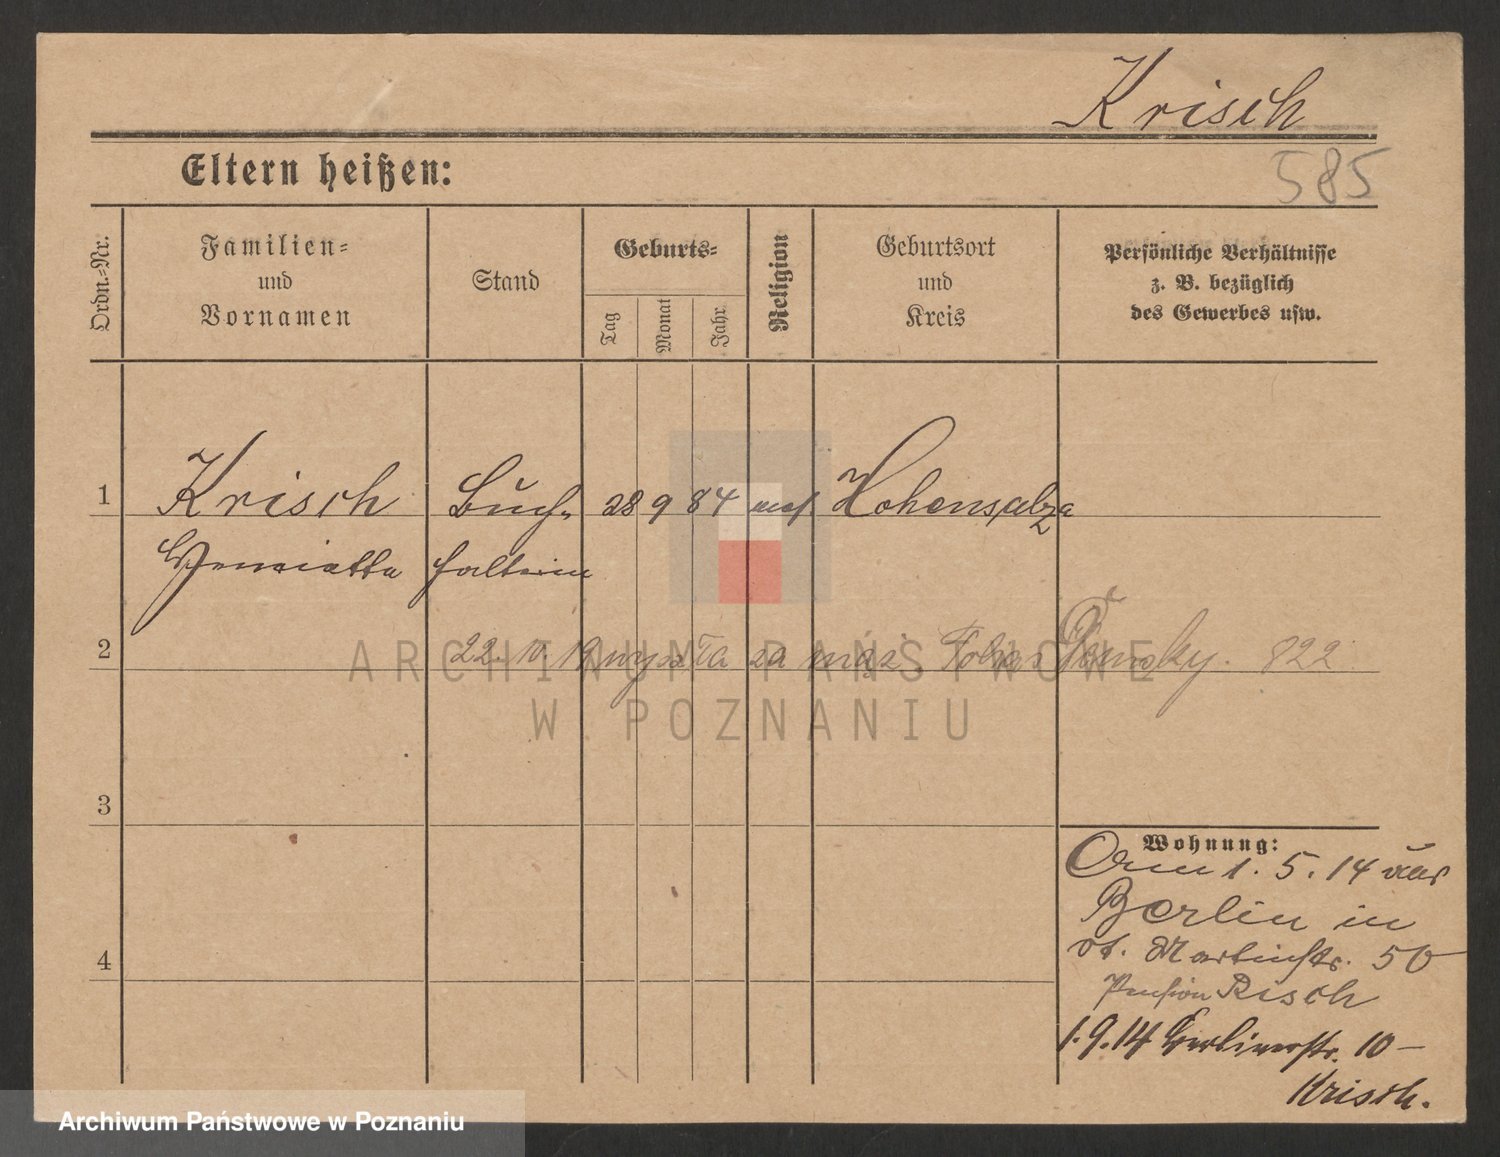 Krisch
Eltern heißen:
585
Ordn.-Nr.
Familien-
und
Vornamen
Stand
Geburts-
Tag
Monat
Jahr
Religion
Geburtsort
und
Kreis
Persönliche Verhältnisse
z. B. bezüglich
des Gewerbes usw.
1 Krisch Buch- 28 9 84 mos. Hohensalza
Henriette halterin
2 22. 10. 19 wyszła za mąż. 822
ARCHIWUM PAŃSTWOWE
W POZNANIU
3
Wohnung:
Am 1. 5. 14 aus
Berlin in
St. Martinstr. 50
4
Pension Risch
1.9.14 Berlinerstr. 10 –
Krisch.
Archiwum Państwowe w Poznaniu